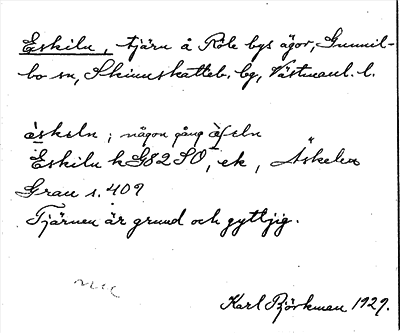 Eskiln, tjärn å Röle bys ägor, Gunnil-
bo sn, Skinnskatteb. bg, Västmanl. l.
èskeln ; någon gång
Eskiln kG82SO, ek, Äskelen
Grau s. 409
Tjärnen är grund och gyttjig.
Karl Björkman 1929.